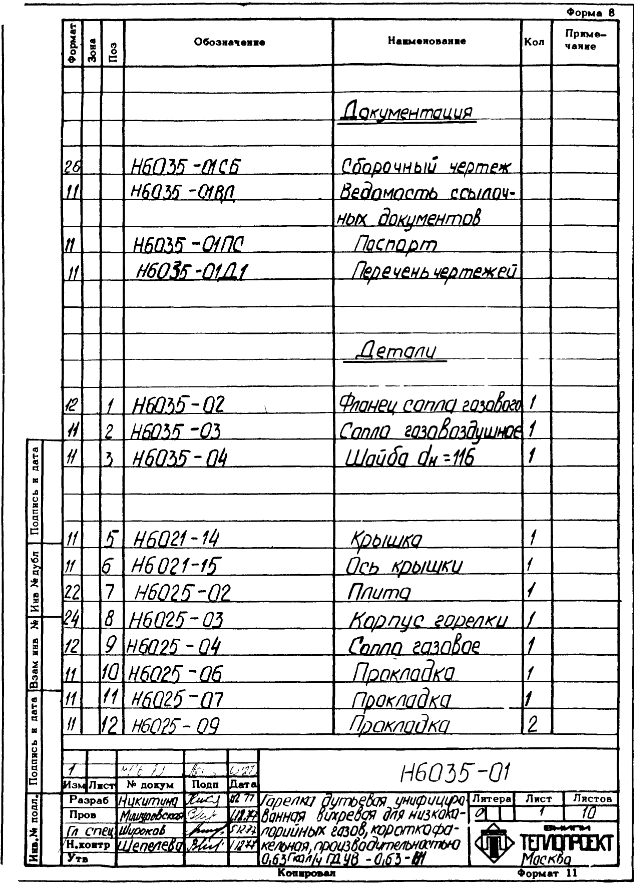 Форма 8
Формат Зона Поз Обозначение Наименование Кол Приме-
чание
Документация
26 Н6035-01СБ Сборочный чертеж
11 Н6035-01ВД Ведомость ссылоч-
ных документов
11 Н6035-01ПС Паспорт
11 Н6035-01Д1 Перечень чертежей
Детали
12 1 Н6035-02 Фланец сопла газового 1
11 2 Н6035-03 Сопло газовоздушное 1
11 3 Н6035-04 Шайба dн=116 1
11 5 Н6021-14 Крышка 1
11 6 Н6021-15 Ось крышки 1
22 7 Н6025-02 Плита 1
24 8 Н6025-03 Корпус горелки 1
12 9 Н6025-04 Сопло газовое 1
11 10 Н6025-06 Прокладка 1
11 11 Н6025-07 Прокладка 1
11 12 Н6025-09 Прокладка 2
Подпись и дата
Инв № дубл
Взам инв №
Подпись и дата
Инв.№ подл.
1
Изм Лист № докум Подп Дата
Н6035-01
Разраб Никитина
Пров
Гл спец Широков
Н.контр Шепелева
Утв
Горелка дутьевая унифициро-
ванная вихревая для низкока-
лорийных газов, короткофа-
кельная, производительностью
0,63 Гкал/ч
Литера Лист Листов
1 10
ВНИПИ
ТЕПЛОПРОЕКТ
Москва
Копировал Формат 11